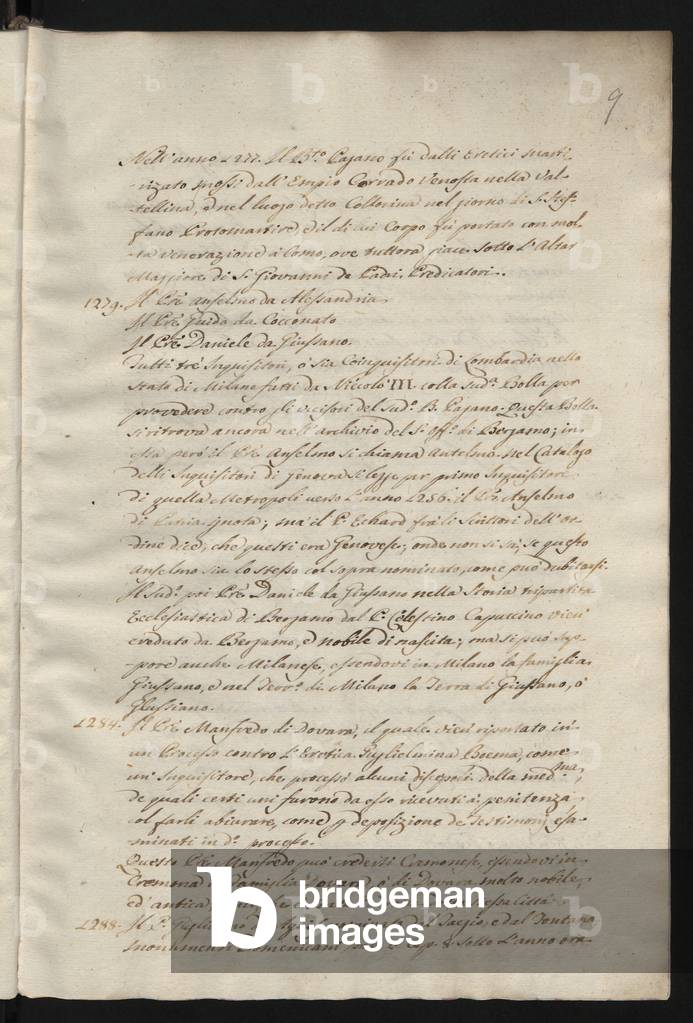 9
Nell'anno 1277. Il B.to Pagano fù dalli Eretici marti-
-rizato mossi dall'Empio Corrado Venosta nella Val-
tellina, e nel luogo detto Colorina nel giorno di S. Stef-
fano Protomartire, e il di lui Corpo fù portato con mol-
-ta venerazione à Como, ove tuttora giace sotto l'Altar
Maggiore di S. Giovanni de Padri Predicatori.
1279. Il Pre Anselmo da Alessandria
Il Pre Guido da Cocconato
Il Pre Daniele da Giussano.
Tutti trè Inquisitori, ò sia Coinquisitori di Lombardia nello
Stato di Milano fatti da Nicolò III. colla sud.a Bolla per
provedere contro gli uccisori del sud.o B. Pagano. Questa Bolla
si ritrova ancora nell'archivio del S. Off.o di Bergamo; in
essa però il Pre Anselmo si chiama Antelmo. Nel Catalogo
delli Inquisitori di Genova si legge per primo Inquisitore
di quella Metropoli verso l'anno 1256. il Pre Anselmo
di Patria ignota; mà il P. Echard frà li Scrittori dell'or-
dine dice, che questi era Genovese; onde non si sà, se questo
Anselmo sia lo stesso col sopra nominato, come può dubitarsi.
Il sud.o poi Pre Daniele da Giussano nella Storia tripartita
Ecclesiastica di Bergamo dal P. Celestino Capuccino vien
creduto da Bergamo, e nobile di nascita; ma si può sup-
-porre anche Milanese, essendovi in Milano la famiglia
Giussano, e nel Terr.o di Milano la Terra di Giussano, ò
Glussiano.
1284. Il Pre Manfredo di Dovara, il quale vien riportato in
un Processo contro l'Eretica Guglielmina Boema, come
un Inquisitore, che processò alcuni discepoli della med.ma,
de quali certi uni furono da esso ricevuti à penitenza
col farli abiurare, come p deposizione de Testimonj esa-
minati in d.o processo.
Questo Pre Manfredo può credersi Cremonese, essendovi in
Cremona la famiglia Dovara, ò di Dovara molto nobile,
ed antica,
1288. Il P. dal Saegio, e dal Fontana
monumenti Domenicani sotto l'anno ora-
bridgeman
images